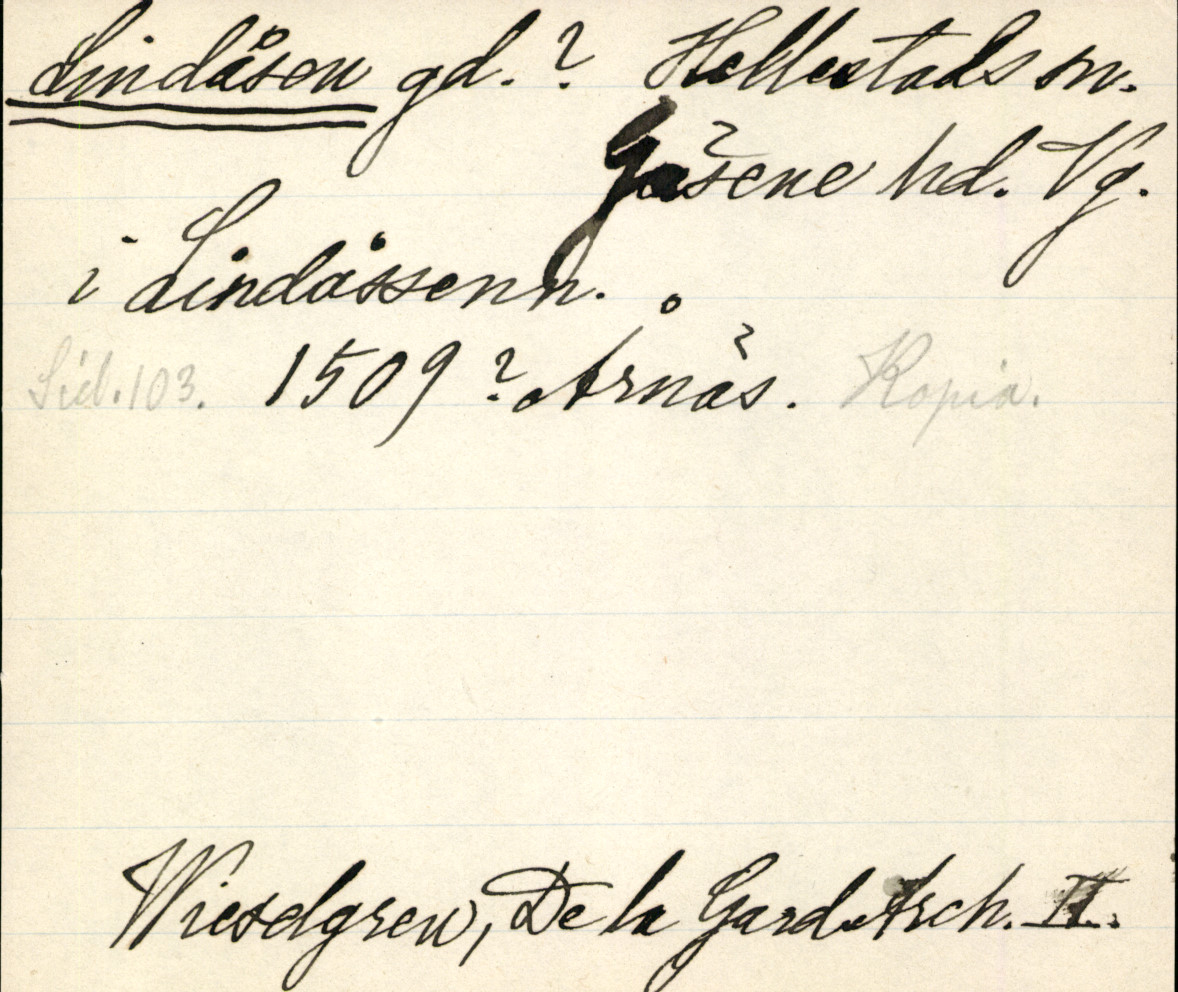 Lindåsen gd.? Hellestads sn.
Gäsene hd. Vg.
i Lindåssenn.
Sid. 103. 1509? Årnäs. Kopia.
Wieselgren, De la Gard. Arch. II.